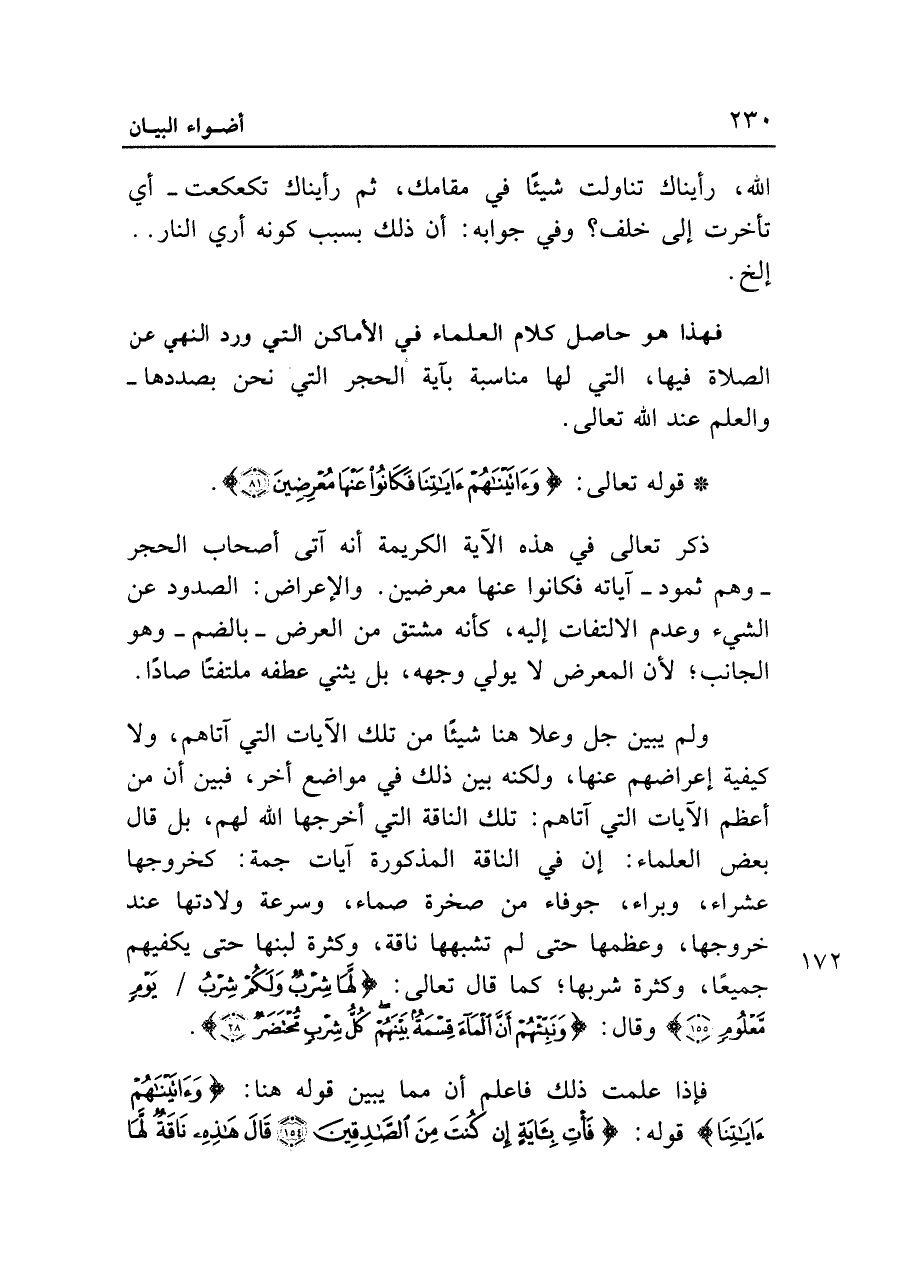 ٢٣٠ أضواء البيان
الله، رأيناك تناولت شيئًا في مقامك، ثم رأيناك تكعكعت ـ أي
تأخرت إلى خلف؟ وفي جوابه: أن ذلك بسبب كونه أري النار. .
إلخ.
فهذا هو حاصل كلام العلماء في الأماكن التي ورد النهي عن
الصلاة فيها، التي لها مناسبة بآية الحجر التي نحن بصددها ـ
والعلم عند الله تعالى.
* قوله تعالى: ﴿ وَءَاتَيْنَٰهُمْ ءَايَٰتِنَا فَكَانُوا۟ عَنْهَا مُعْرِضِينَ ٨١ ﴾ .
ذكر تعالى في هذه الآية الكريمة أنه آتى أصحاب الحجر
ـ وهم ثمود ـ آياته فكانوا عنها معرضين. والإعراض: الصدود عن
الشيء وعدم الالتفات إليه، كأنه مشتق من العرض ـ بالضم ـ وهو
الجانب؛ لأن المعرض لا يولي وجهه، بل يثني عطفه ملتفتًا صادًا.
ولم يبين جل وعلا هنا شيئًا من تلك الآيات التي آتاهم، ولا
كيفية إعراضهم عنها، ولكنه بين ذلك في مواضع أخر، فبين أن من
أعظم الآيات التي آتاهم: تلك الناقة التي أخرجها الله لهم، بل قال
بعض العلماء: إن في الناقة المذكورة آيات جمة: كخروجها
عشراء، وبراء، جوفاء من صخرة صماء، وسرعة ولادتها عند
خروجها، وعظمها حتى لم تشبهها ناقة، وكثرة لبنها حتى يكفيهم
١٧٢
جميعًا، وكثرة شربها؛ كما قال تعالى: ﴿ لَّهَا شِرْبٌ وَلَكُمْ شِرْبُ / يَوْمٍ
مَّعْلُومٍ ١٥٥ ﴾ وقال: ﴿ وَنَبِّئْهُمْ أَنَّ ٱلْمَآءَ قِسْمَةٌۢ بَيْنَهُمْ ۖ كُلُّ شِرْبٍ مُّحْتَضَرٌ ٢٨ ﴾ .
فإذا علمت ذلك فاعلم أن مما يبين قوله هنا: ﴿ وَءَاتَيْنَٰهُمْ
ءَايَٰتِنَا ﴾ قوله: ﴿ فَأْتِ بِـَٔايَةٍ إِن كُنتَ مِنَ ٱلصَّٰدِقِينَ ١٥٤ قَالَ هَٰذِهِۦ نَاقَةٌ لَّهَا